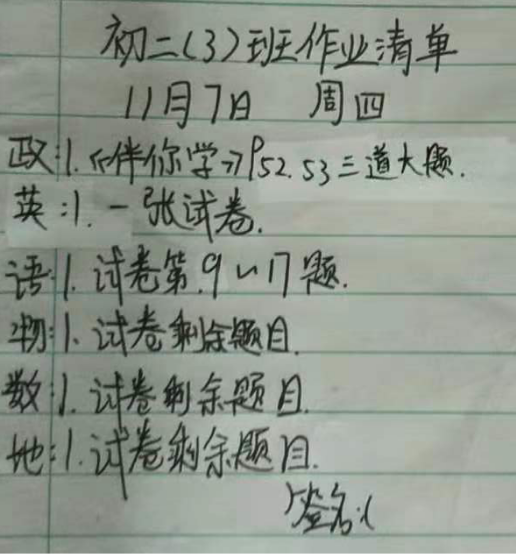 初二(3)班作业清单
11月7日 周四
政:1.《伴你学》P52.53三道大题.
英:1.一张试卷.
语:1.试卷第9~17题.
物:1.试卷剩余题目.
数:1.试卷剩余题目.
地:1.试卷剩余题目.
签名:(